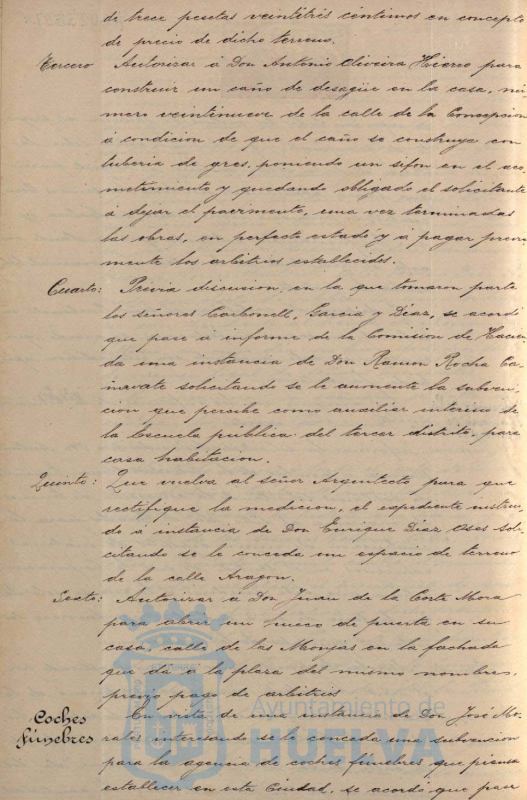 de trece pesetas veintitrés céntimos en concepto
de precio de dicho terreno.
Tercero Autorizar á Don Antonio Oliveira Hierro para
construir un caño de desagüe en la casa, nú-
mero veintinueve de la calle de la Concepcion
á condicion de que el caño se construya con
tuberia de gres, poniendo un sifon en el aco-
metimiento y quedando obligado el solicitante
á dejar el pavimento, una vez terminadas
las obras, en perfecto estado y á pagar previa-
mente los arbitrios establecidos.
Cuarto: Prévia discusion, en la que tomaron parte
los señores Carbonell, García y Díaz, se acordó
que pase á informe de la Comision de Hacien-
da una instancia de Don Ramon Rocha Ca-
ñavate solicitando se le aumente la subven-
cion que percibe como auxiliar interino de
la Escuela pública del tercer distrito, para
casa habitacion.
Quinto: Que vuelva al señor Arquitecto para que
rectifique la medicion, el expediente instrui-
do á instancia de Don Enrique Diaz Oses soli-
citando se le conceda un espacio de terreno
de la calle Aragon.
Sexto: Autorizar á Don Juan de la Corte Mora
para abrir un hueco de puerta en su
casa, calle de las Monjas en la fachada
que dá á la plaza del mismo nombre,
prévio pago de arbitrios
Coches Fúnebres En vista de una instancia de Don José Mo-
rales interesando se le conceda una subvencion
para la agencia de coches fúnebres que piensa
establecer en esta Ciudad, se acordó que pase
Ayuntamiento de
HUELVA